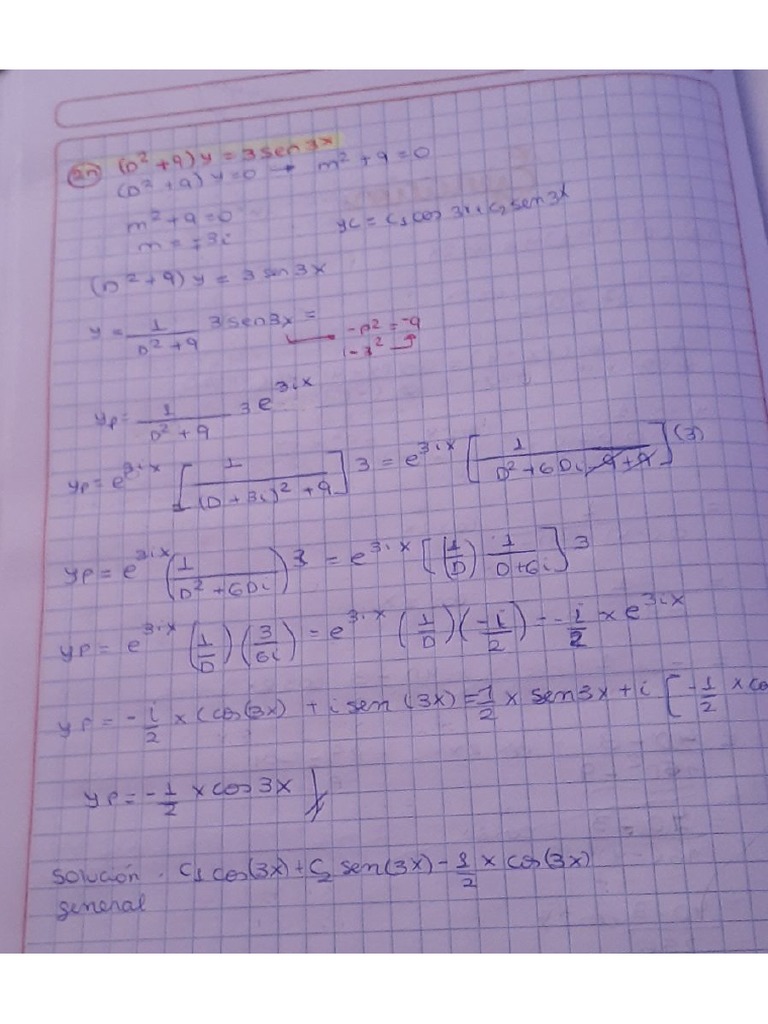 2n) (D² + 9) y = 3 sen 3x
(D² + 9) y = 0 → m² + 9 = 0
m² + 9 = 0
m = ± 3i
yc = C₁ cos 3x + C₂ sen 3x
(D² + 9) y = 3 sen 3x
y = 1/(D² + 9) 3 sen 3x =
-D² = -9
(-3²
yp = 1/(D² + 9) 3 e^(3ix)
yp = e^(3ix) [1/((D + 3i)² + 9)] 3 = e^(3ix) [1/(D² + 6Di - 9 + 9)] (3)
yp = e^(3ix) (1/(D² + 6Di)) 3 = e^(3ix) [(1/D) 1/(D + 6i)] 3
yp = e^(3ix) (1/D) (3/6i) = e^(3ix) (1/D) (-i/2) = -i/2 x e^(3ix)
yp = -i/2 x (cos(3x) + i sen (3x) = 1/2 x sen 3x + i [-1/2 x co
yp = -1/2 x cos 3x
Solución . C₁ cos(3x) + C₂ sen(3x) - 1/2 x cos(3x)
general